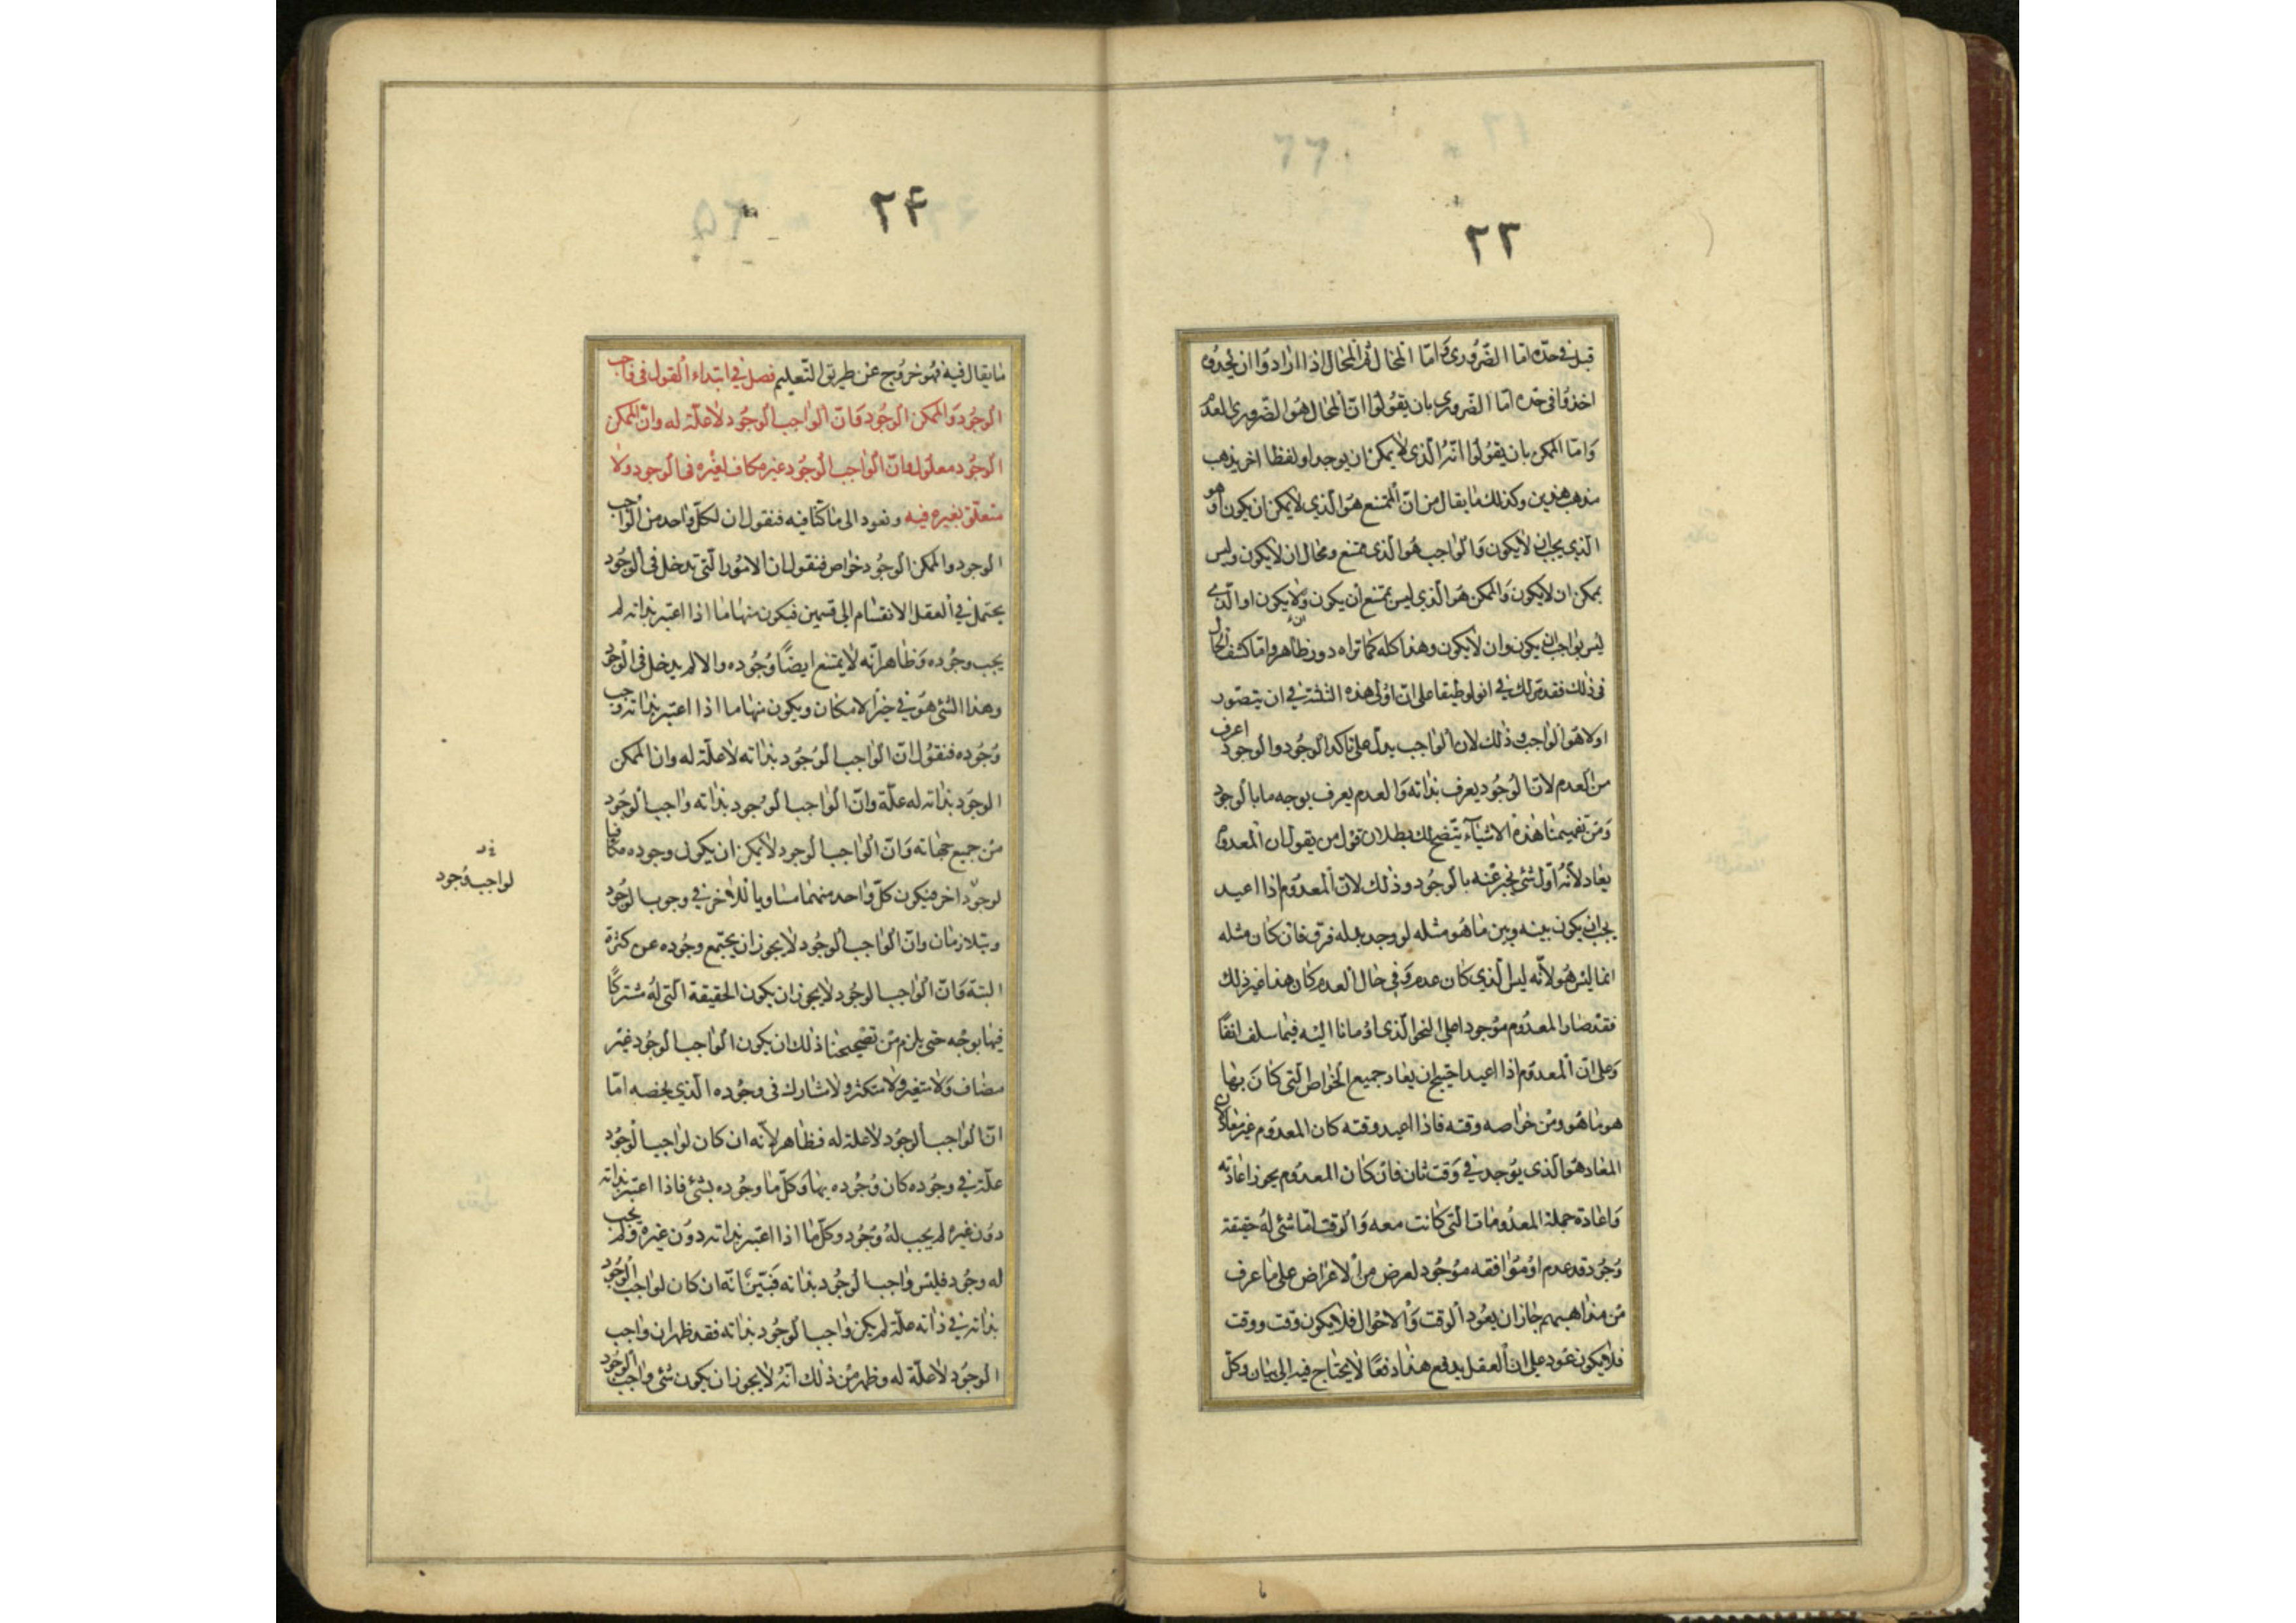 ٢٣
قبل فی حده اما الضروری و اما المحال ثم المحال اذا ارادوا ان یحدوه
اخذوا فی حده اما الضروری بان یقولوا ان المحال هو الضروری العدم
وَامّا الممکن بان یقولوا انّه الذی لا یمکن ان یوجد او لفظا اخر یذهب
مذهب هذین وکذلك ما یقال من انّ الممتنع هو الّذی لا یمکن ان یکون او هو
الّذی یجب ان لا یکون وَالواجب هو الّذی ممتنع ومحال ان لا یکون ولیس
بممکن ان لا یکون وَالممکن هو الّذی لیس ممتنع أن یکون ولا یکون او الّذی
لیس بواجب ان یکون وان لا یکون وهذا کله کما تراه دور ظاهر واما کشف الحال
فی ذلك فقد مر لك فی انولوطیقا علی انّ اولی هذه الثلثة فی ان یتصور
اولا هو الواجب و ذلك لان الواجب یدل علی تاکد الوجود والوجود اعرف
من العدم لان الوجود یعرف بذاته وَالعدم یعرف بوجه ما بالوجود
وَمن تفهیمنا هذه الاشیآء یتّضح لك بطلان قول من یقول ان المعدوم
یعاد لانه اول شئ یخبر عنه بالوجود وذلك لان المعدوم اذا اعید
یجب ان یکون بینه وبین ما هو مثله لو وجد بدله فرق فان کان مثله
انما لیس هو لانّه لیس الّذی کان عدم وَفی حال العدم کان هذا غیر ذلك
فقد صار المعدوم موجودا علی النحو الّذی اومانا الیه فیما سلف انفًا
وَعلی انّ المعدوم اذا اعید احتیج ان یعاد جمیع الخواص الّتی کان بها
هو ما هو ومن خواصه وقته فاذا اعید وقته کان المعدوم غیر معاد لان
المعاد هو الّذی یوجد فی وقت ثان فان کان المعدوم یجوز اعادته
وَاعادة جملة المعدومات الّتی کانت معه وَالوقت اما شئ له حقیقة
وجود قد عدم اوْ موافقه موجود لعرض من الاعراض علی ما عرف
من مذاهبهم جاز ان یعود الوقت وَالاحوال فلا یکون وقت و وقت
فلا یکون عود علی ان العقل یدفع هذا دفعًا لا یحتاج فیه الی بیان وکلّ
٢۴
ما یقال فیه فهو خروج عن طریق التّعلیم فصل فی ابتداء القول فی واجب
الوجود وَالممکن الوجود وَانّ الواجب الوجود لا علّة له وانّ الممکن
الوجود معلول وانّ الواجب الوجود غیر مکاف لغیره فی الوجود ولا
متعلق بغیره فیه ونعود الی ما کنّا فیه فنقول ان لکلّ واحد من الواجب
الوجود والممکن الوجود خواص فنقول ان الامور الّتی تدخل فی الوجود
یحتمل فی العقل الانقسام الی قسمین فیکون منها ما اذا اعتبر بذاته لم
یجب وجوده وَظاهر انّه لا یمتنع ایضًا وجوده والا لم یدخل فی الوجود
وهذا الشئ هو فی حیّز الامکان ویکون منها ما اذا اعتبر بذاته وجب
وُجُوده فنقول انّ الواجب الوجود بذاته لا علّة له وان الممکن
الوجود بذاته له علّة وانّ الواجب الوجود بذاته واجب الوجود
من جمیع جهاته وَانّ الواجب الوجود لا یمکن ان یکون وجوده مکافیا
لوجود اخر فیکون کلّ واحد منهما مساویا للاخر فی وجوب الوجود
ویتلازمان وانّ الواجب الوجود لا یجوز ان یجتمع وجوده عن کثرة
البتة وَانّ الواجب الوجود لا یجوز ان یکون الحقیقة الّتی له مشترکًا
فیها بوجه حتی یلزم من تصحیحنا ذلك ان یکون الواجب الوجود غیر
مضاف وَلا متغیر ولا متکثر ولا مشارك فی وجوده الّذی یخصه امّا
انّ الواجب الوجود لا علة له فظاهر لانّه ان کان لواجب الوجود
علّة فی وجوده کان وجوده بها وَکلّ ما وجوده بشئ فاذا اعتبر بذاته
دون غیره لم یجب له وجود وکلّ ما اذا اعتبر بذاته دون غیره ولم یجب
له وجود فلیس واجب الوجود بذاته فَبَیّن انّه ان کان لواجب الوجود
بذاته فی ذاته علّة لم یکن واجب الوجود بذاته فقد ظهر ان واجب
الوجود لا علّة له وظهر من ذلك انّه لا یجوز ان یکون شئ واجب الوجود
لواجب وجود